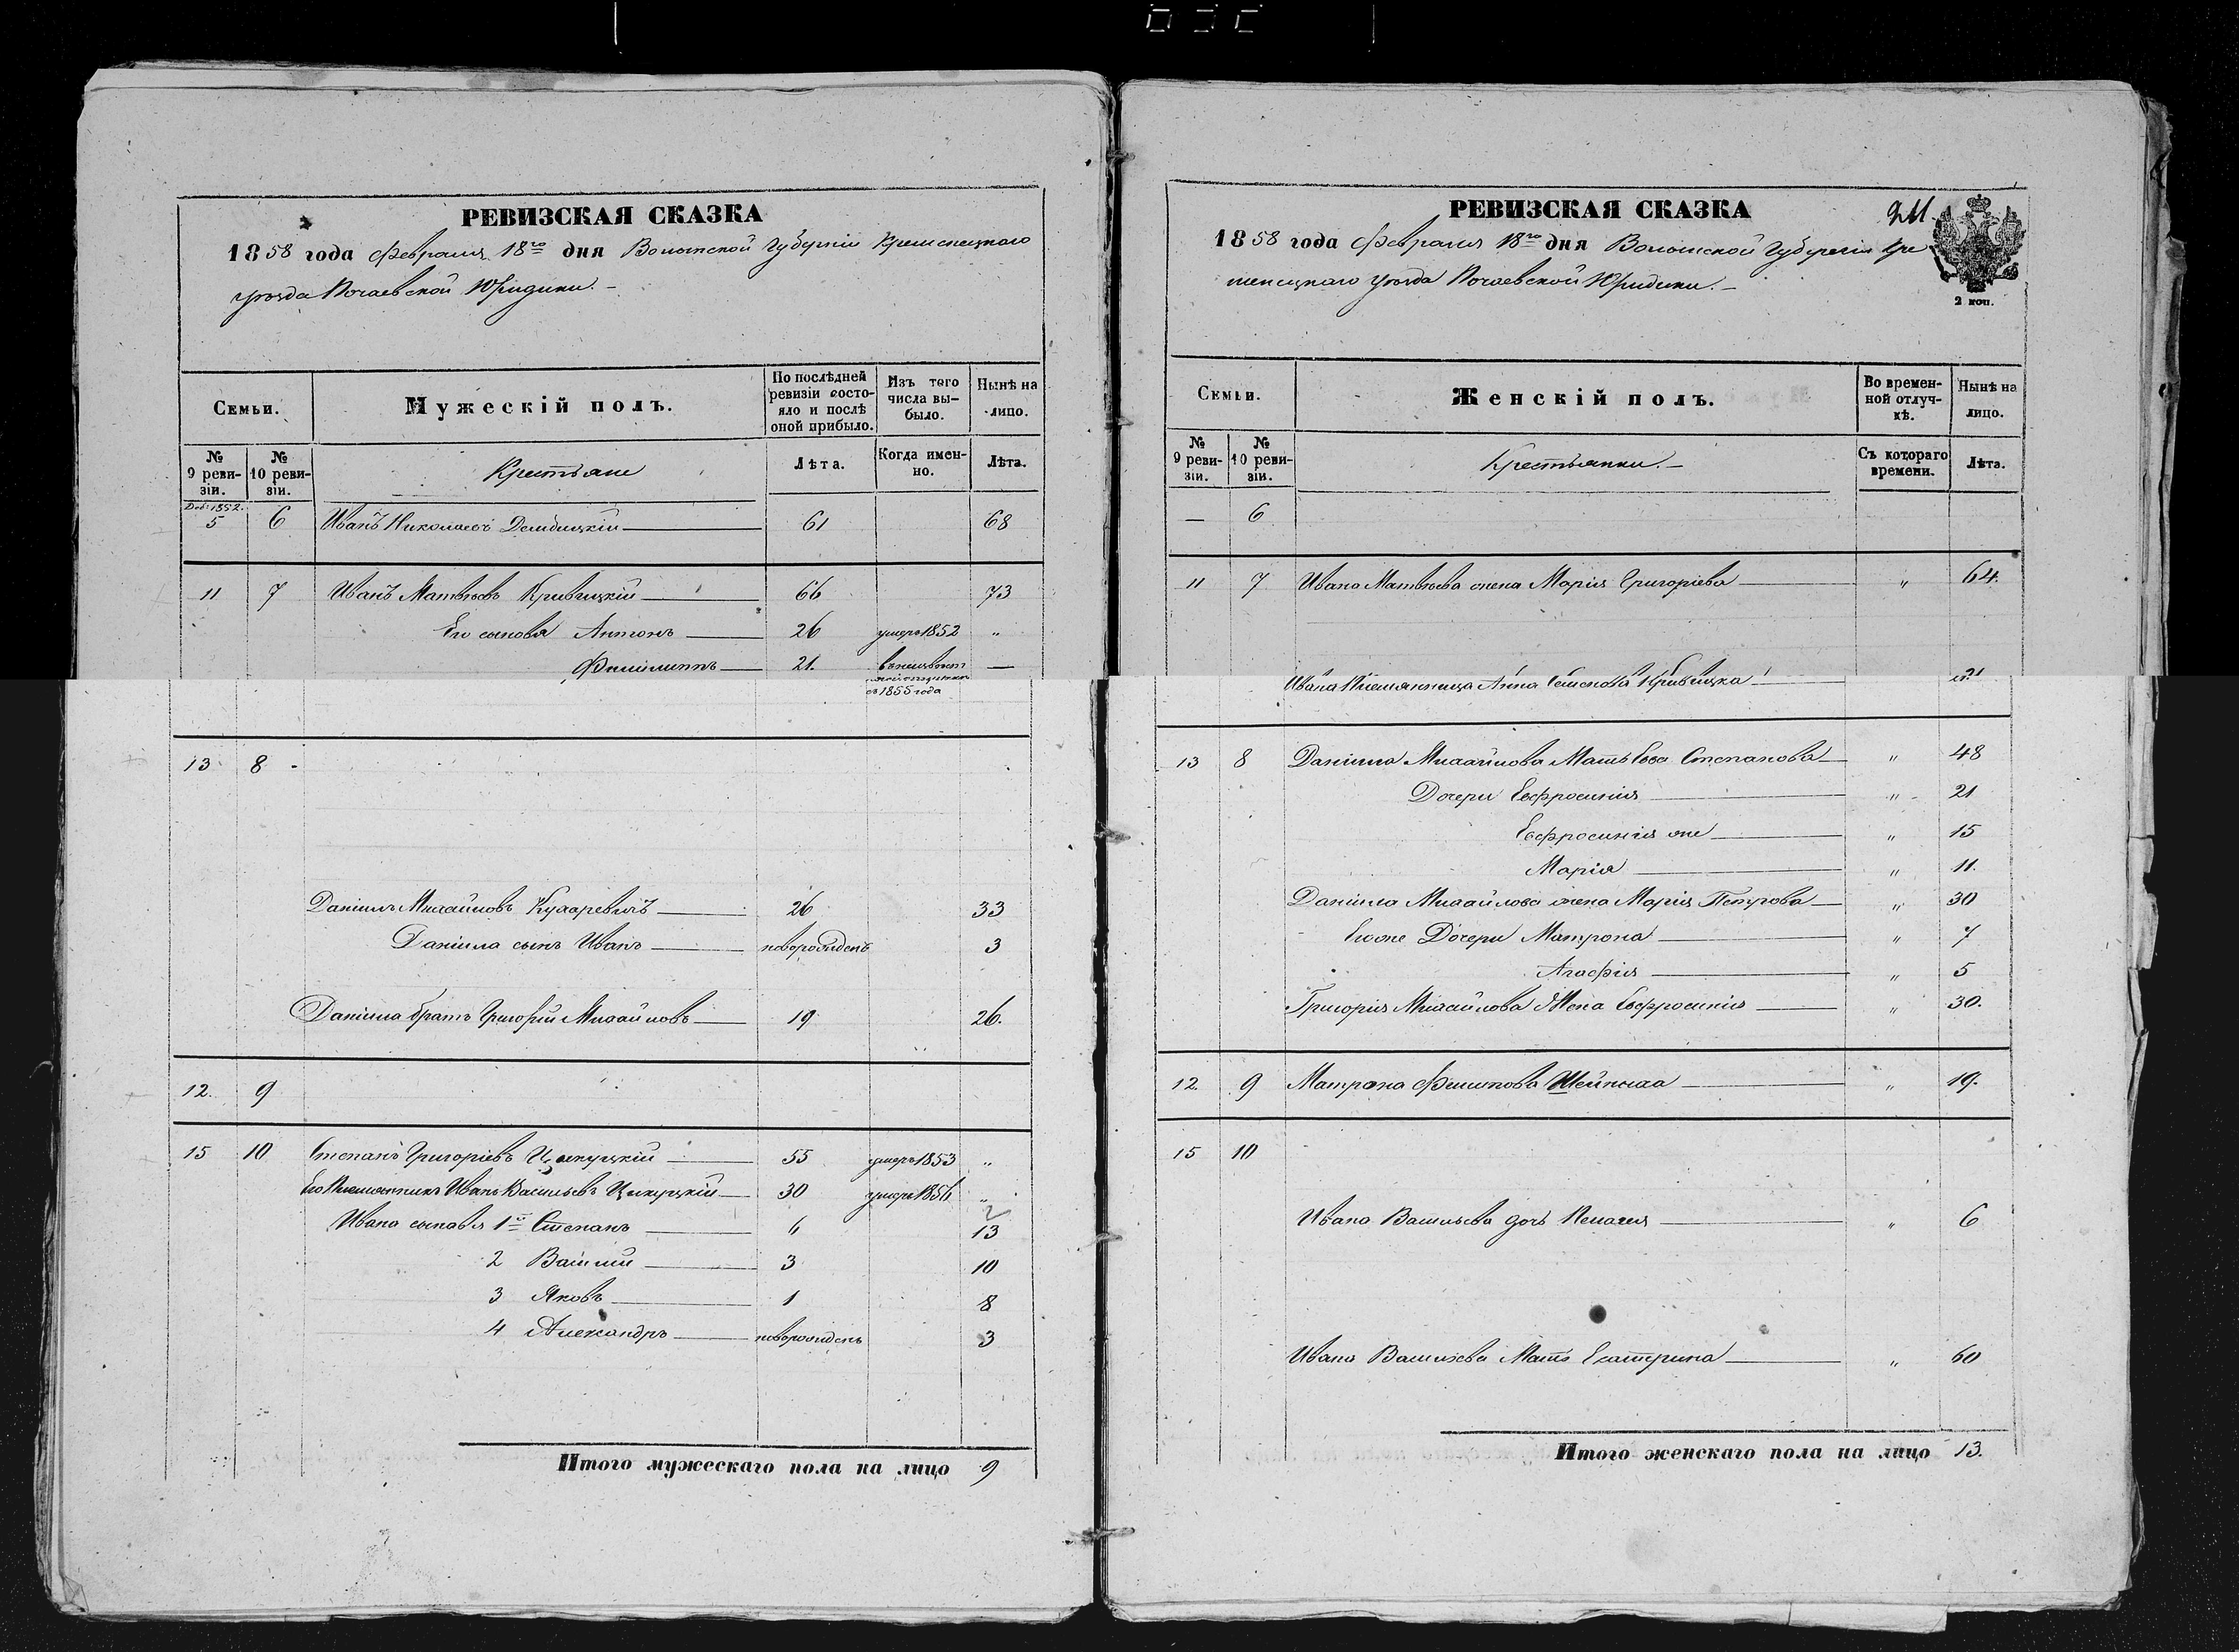 РЕВИЗСКАЯ СКАЗКА
1858 года Февраля 18го дня Волынской Губерніи Кременецкаго
уѣзда Почаевской Юридики. –
Семьи.
Мужескій полъ.
По послѣдней ревизіи состояло и послѣ оной прибыло.
Изъ того числа выбыло.
Нынѣ на лицо.
№ 9 ревизіи.
№ 10 ревизіи.
Крестьяне
Лѣта.
Когда именно.
Лѣта.
Доб. 1852.
5 6 Иванъ Николаевъ 61 68
11 7 Иванъ Матвѣевъ Кривицкій 66 73
Его сыновья Антонъ 26 умеръ 1852 "
Филиппъ 21. —
съ 1855 года
13 8
Даніилъ Михайловъ Кухаревичъ 26 33
Даніила сынъ Иванъ новорожденъ 3
Даніила братъ Григорій Михайловъ 19 26.
12. 9
15 10 Степанъ Григорьевъ 55 умеръ 1853 "
Его Племянникъ Иванъ Васильевъ 30 умеръ 1856 "
Ивана сыновья 1й Степанъ 6 13
2 Василій 3 10
3 Яковъ 1 8
4 Александръ новорожденъ 3
Итого мужескаго пола на лицо 9
РЕВИЗСКАЯ СКАЗКА
1858 года Февраля 18го дня Волынской Губерніи Кре
менецкаго уѣзда Почаевской Юридики. –
2 коп.
Семьи.
Женскій полъ.
Во временной отлучкѣ.
Нынѣ на лицо.
№ 9 ревизіи.
№ 10 ревизіи.
Крестьянки. –
Съ котораго времени.
Лѣта.
— 6
11 7 Ивана Матвѣева жена Марія Григорьева " 64.
Ивана Племянница Анна Семенова Кривицка 21
13 8 Даніила Михайлова Мать Ева Степанова " 48
Дочери Евфросинія " 21
Евфросинія же " 15
Марія " 11.
Даніила Михайлова жена Марія Петрова " 30
Его же Дочери Матрона " 7
Агафія " 5
Григорія Михайлова Жена Евфросинія " 30.
12 9 Матрона Филипова " 19.
15 10
Ивана Васильева дочь Пелагея " 6
Ивана Васильева Мать Екатерина " 60
Итого женскаго пола на лицо 13.